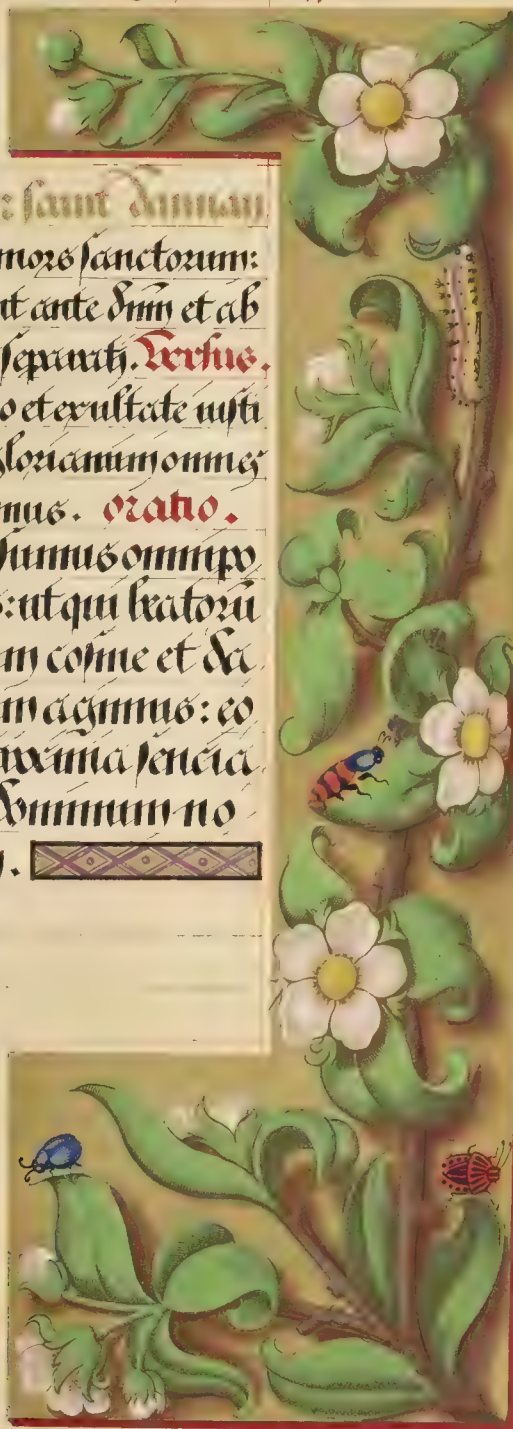 : saint damian
mors sanctorum:
nt ante dnm et ab
separati. Versus.
o et exultate iusti
gloriamini omnes
mus. oratio.
sumus omnipo
s: ut qui beatorū
m cosme et da
m agimus: eo
domimum no
.